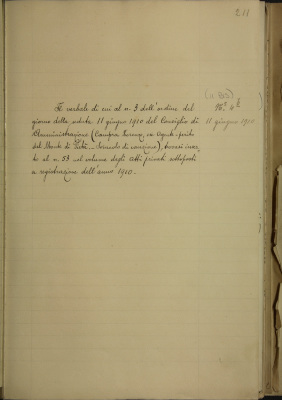 211
(n. 53)
N. 4
11 giugno 1910
Il verbale di cui al n. 3 dell'ordine del
giorno della seduta 11 giugno 1910 del Consiglio di
Amministrazione (Campra Lorenzo, ex Capo-perito
del Monte di Pietà - Svincolo di cauzione), trovasi inser-
to al n. 53 nel volume degli Atti privati sottoposti
a registrazione dell'anno 1910.